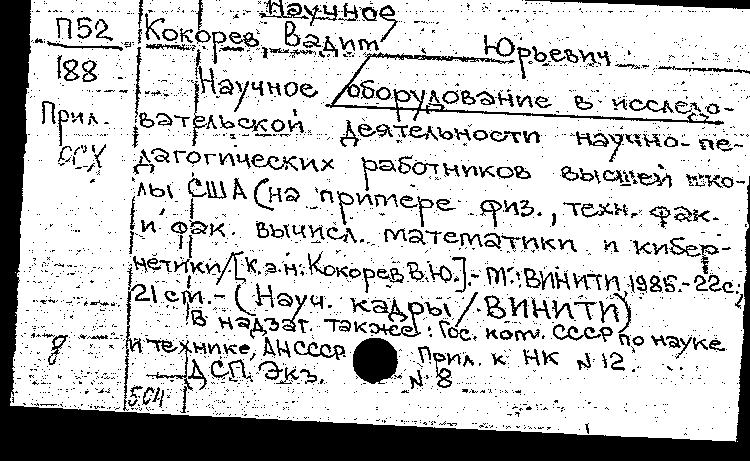 Научное
П52 Кокорев, Вадим Юрьевич
188 Научное оборудование в исследо-
Прил. вательской деятельности научно-пе-
ОСХ дагогических работников высшей шко-
лы США (на примере физ., техн. фак.
и фак. вычисл. математики и кибер-
нетики/[К.э.н.: Кокорев В.Ю.].- М.: ВИНИТИ, 1985.-22с.;
21 cm.- (Науч. кадры/ВИНИТИ)
В надзаг. также: Гос. ком. СССР по науке
д и технике, АН СССР Прил. к НК N 12.
ДСП. Экз. N 8
5.04